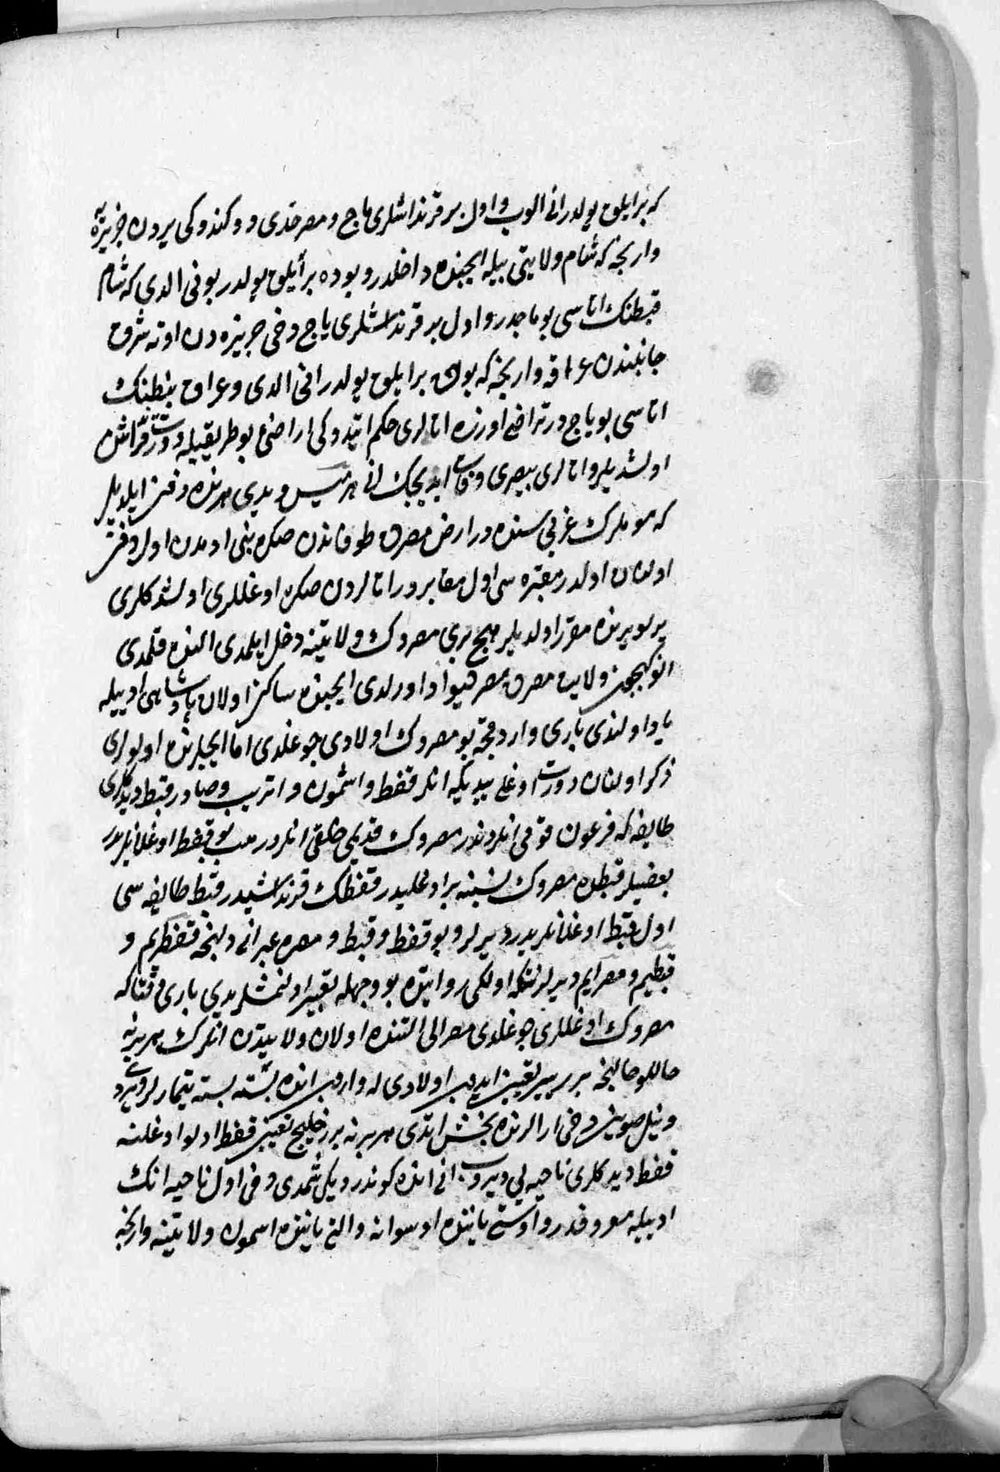 که بر ایلق یولدر انی الوب و اول بر قرنداشلری یاج و مصر حدی و دوکندوکی یردن جزیره‌یه
وارنجه که شام ولایتی بیله ایچنده داخلدر و بو ده بر ایلق یولدر بونی الدی که شام
قبطنک اتاسی بو ماجدر و اول بر قرنداشلری یاج دخی جزیره دن اوته شرق
جانبندن عراقه وارنجه که بو دخی بر ایلق یولدر انی الدی و عراق نبطنک
اتاسی بو یاج در تراضی اوزره اتالری حکم ایتدوکی اراضی بو طریقیله دورت قرنداش
اولشدیلر و اتالری بیصری وفات ایدیجک انی هرمیس ویدی هرمنده دفن ایلدیلر
که موملرک غربی سنده در ارض مصرده طوفاندن صکره بنی ادمدن اول دفن
اولنان اولدر مقبره سی اول مقابر در اتالردن صکره اوغللری اولشدکلری
یرلو یرنده مقرر اولدیلر هیچ بری مصروک ولایتینه دخل ایلمدی النده قلمدی
انوکیچون ولایت مصره مصر دیو اد اورلدی ایچنده ساکن اولان پادشاهی ادیله
یاد اولندی باری واردقجه بو مصروک اولادی چوغلدی اما ایچلرنده اولولری
ذکر اولنان دورت اوغلی ییدیکه انلر قفط و اشمون و اتریب و صادر قبط دیدکلری
طایفه که فرعون قومی انلردندر مصروک قدیمی خلقی انلردر هب بو قبط اوغلانلریدر
بعضیلر قبطه مصروک نسبنه بر اوغلیدر قفطک قرنداشیدر قبط طایفه سی
اول قبط اوغلانلریدر دیرلر و بو قفط و قبط و مصره عبرانی دلنجه قفطریم و
قبطیم و مصرایم دیرلر نتکه اولکی روایتده بو وجهله تعبیر اولنمشلریدی باری وقتاکه
مصروک اوغللری چوغلدی مصر الی التنده اولان ولایتدن انلرک هر برینه
حاللو حالنجه بر یر تعیین ایدوب اولادی له واروب انده بسته بسته تیمارلر ویردی
و نیل صوینی دخی ارالرنده بخش ایتدی هر برینه بر خلیج تعیین قفط ادلو اوغلنه
قفط دیدکلری ناحیه یی ویروب انی انده کوندردیکی شمدی دخی اول ناحیه انک
ادیله معروفدر و اوستی یاننده اوسوانه و الت یاننده اسمون ولایتینه وارنجه